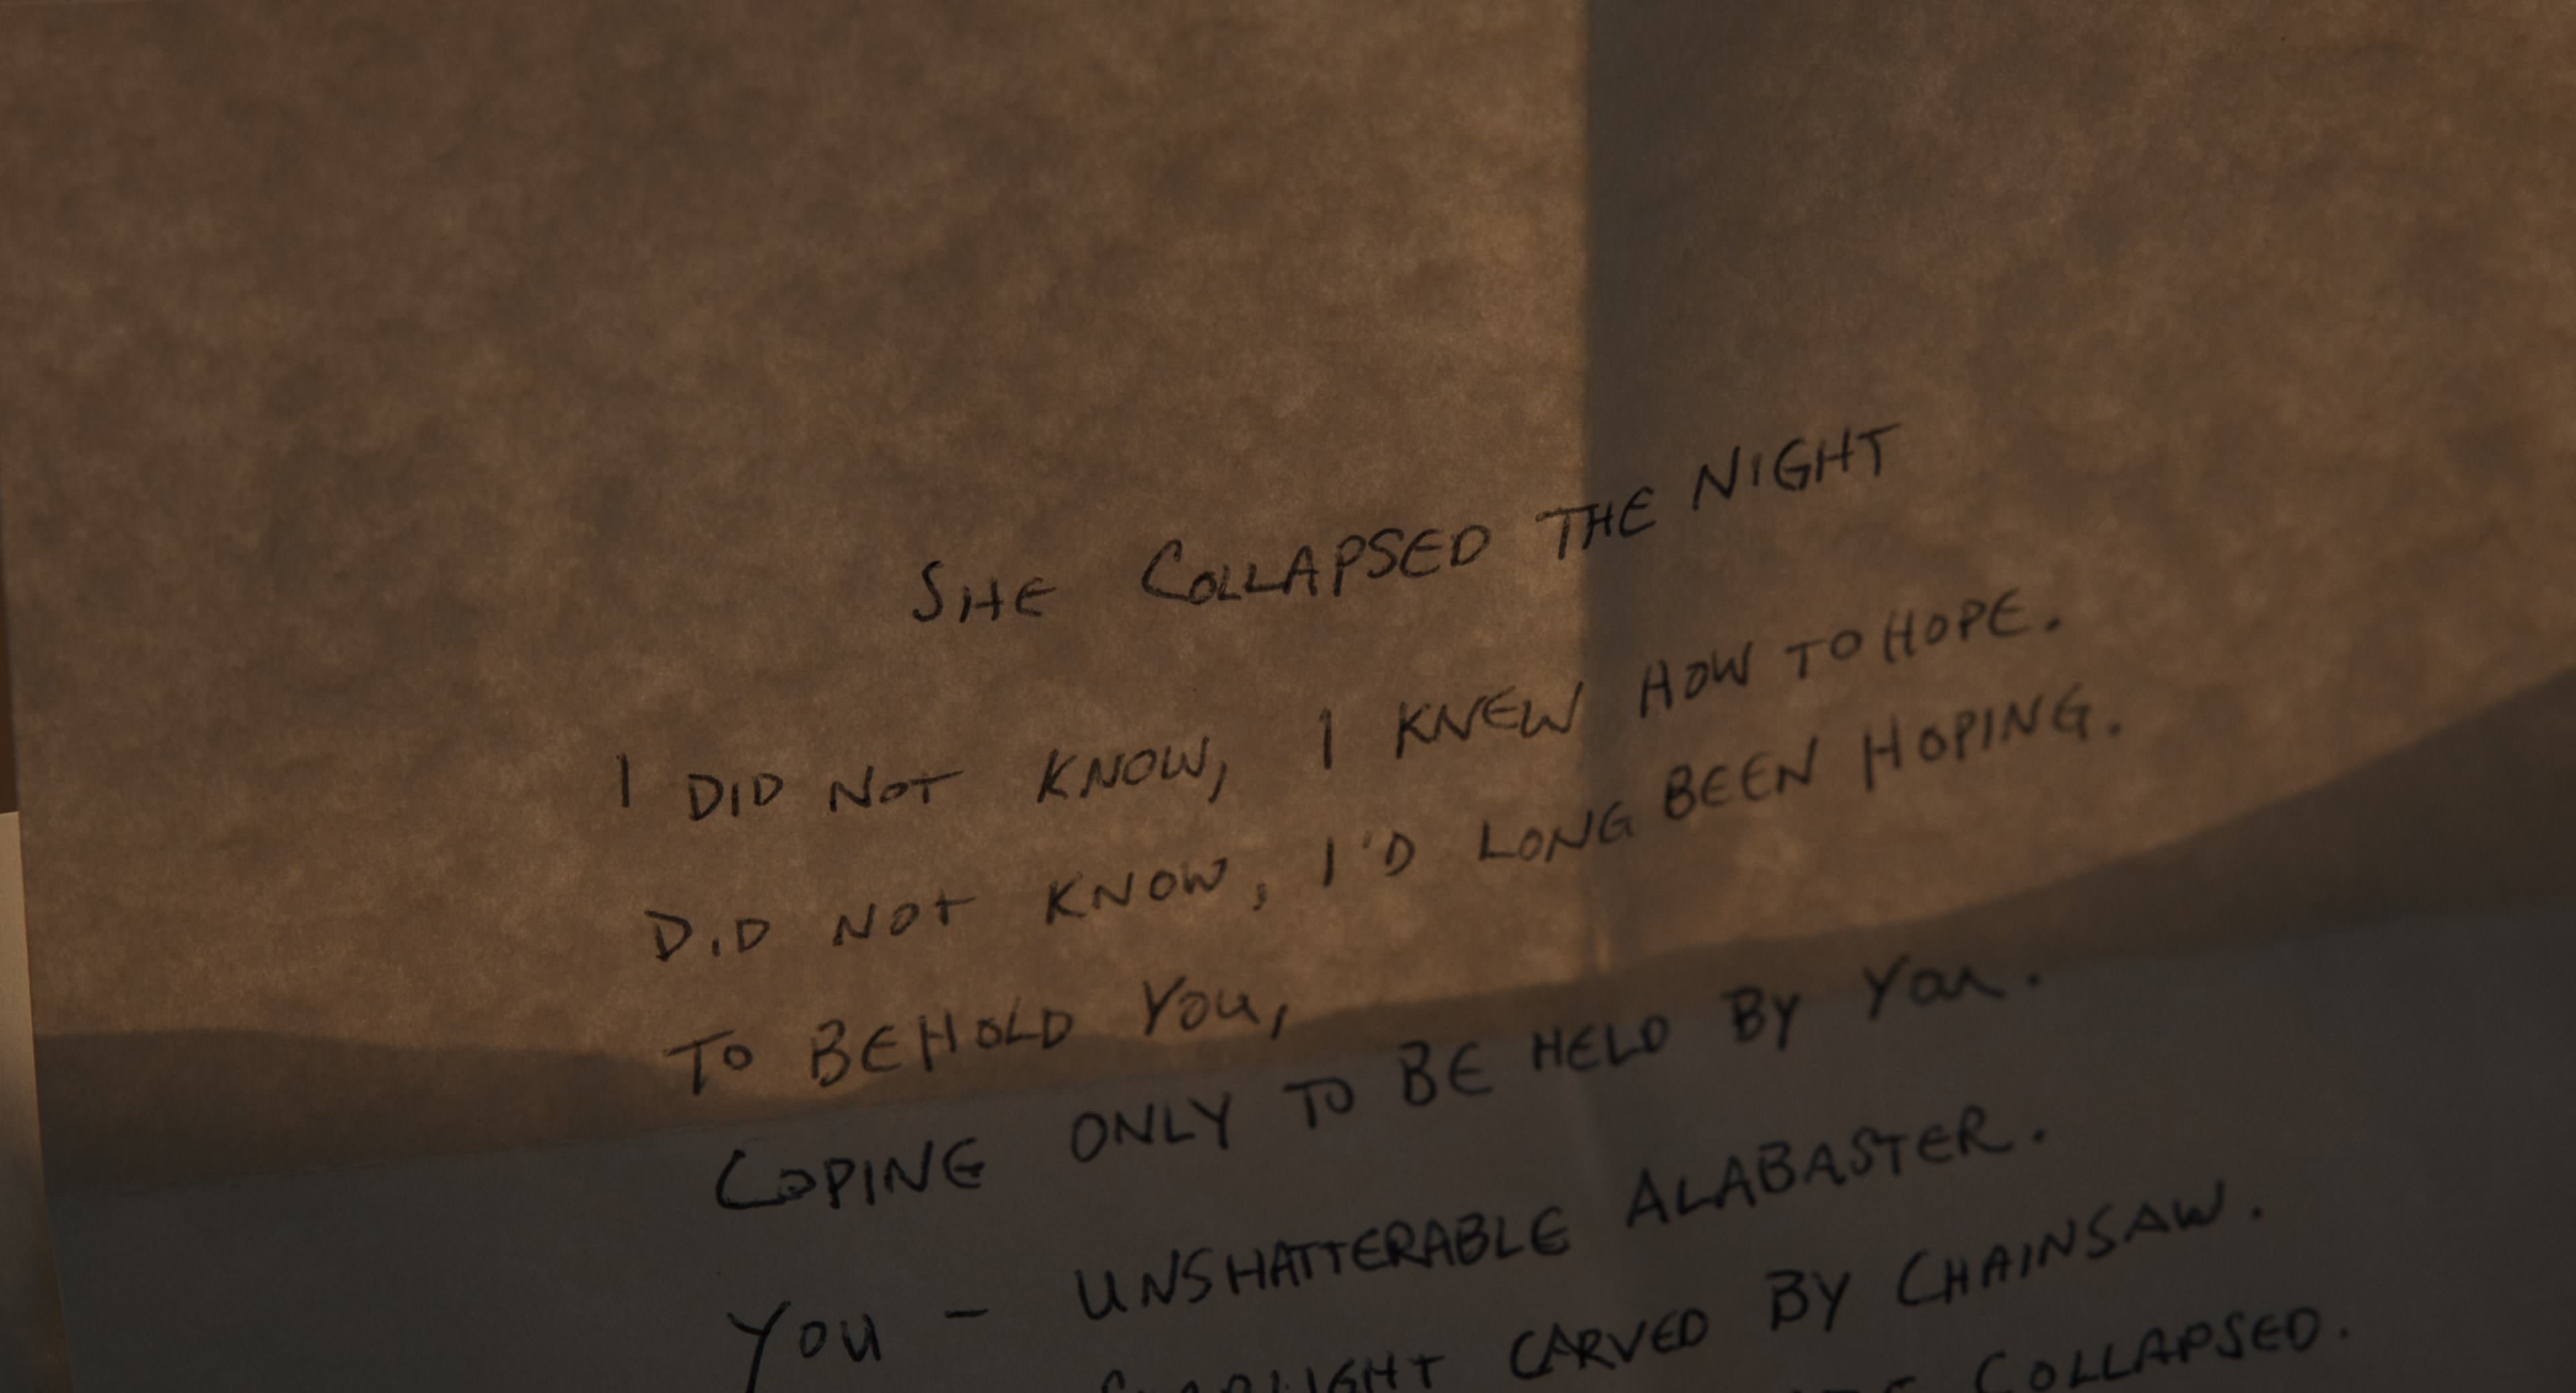 SHE COLLAPSED THE NIGHT
I DID NOT KNOW, I KNEW HOW TO HOPE.
DID NOT KNOW, I'D LONG BEEN HOPING.
TO BEHOLD YOU,
COPING ONLY TO BE HELD BY YOU.
YOU - UNSHATTERABLE ALABASTER.
CARVED BY CHAINSAW.
COLLAPSED.